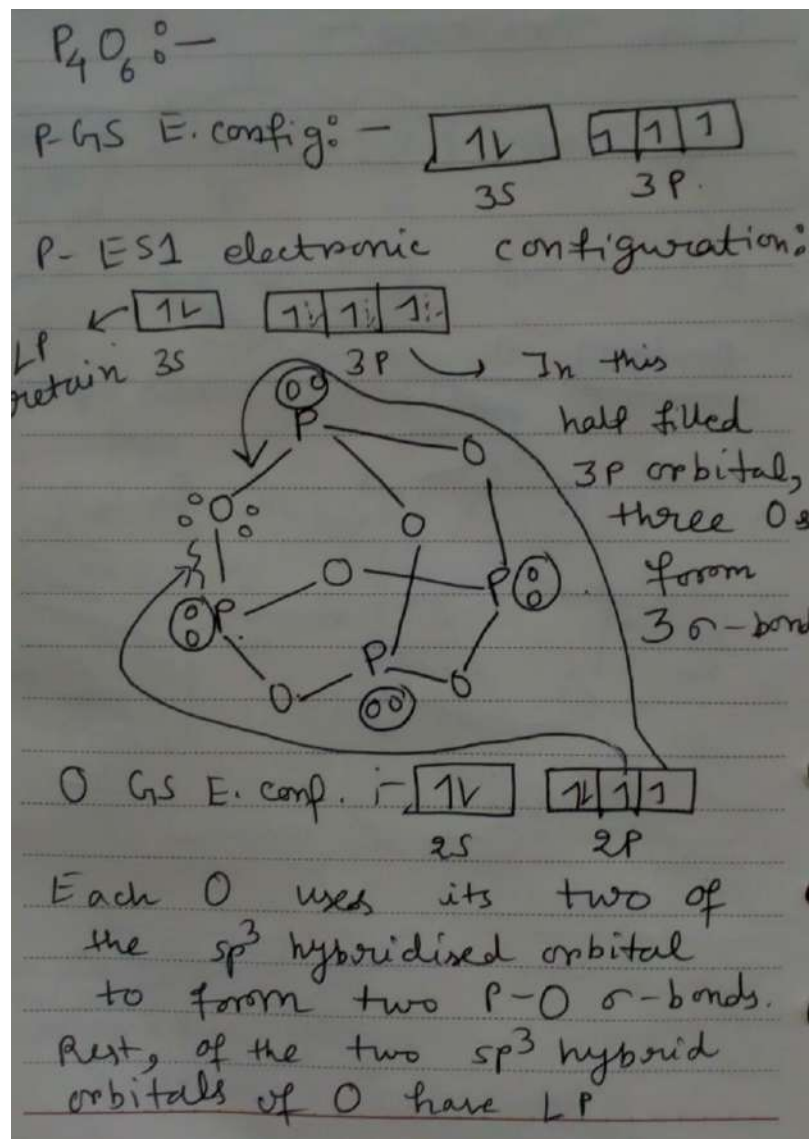 P4O6 :-
P-GS E. config: - 1L 1 1 1
3S 3P.
P- ES1 electronic configuration:
1L 1 1 1
LP retain 3S 3P In this
half filled
3P orbital,
three Os
form
3 σ-bond
P
O
O
O
O
P
P
P
O
O
O GS E. conf. :- 1L 1L 1 1
2S 2P
Each O uses its two of
the sp³ hybridised orbital
to form two P-O σ-bonds.
Rest, of the two sp³ hybrid
orbitals of O have LP